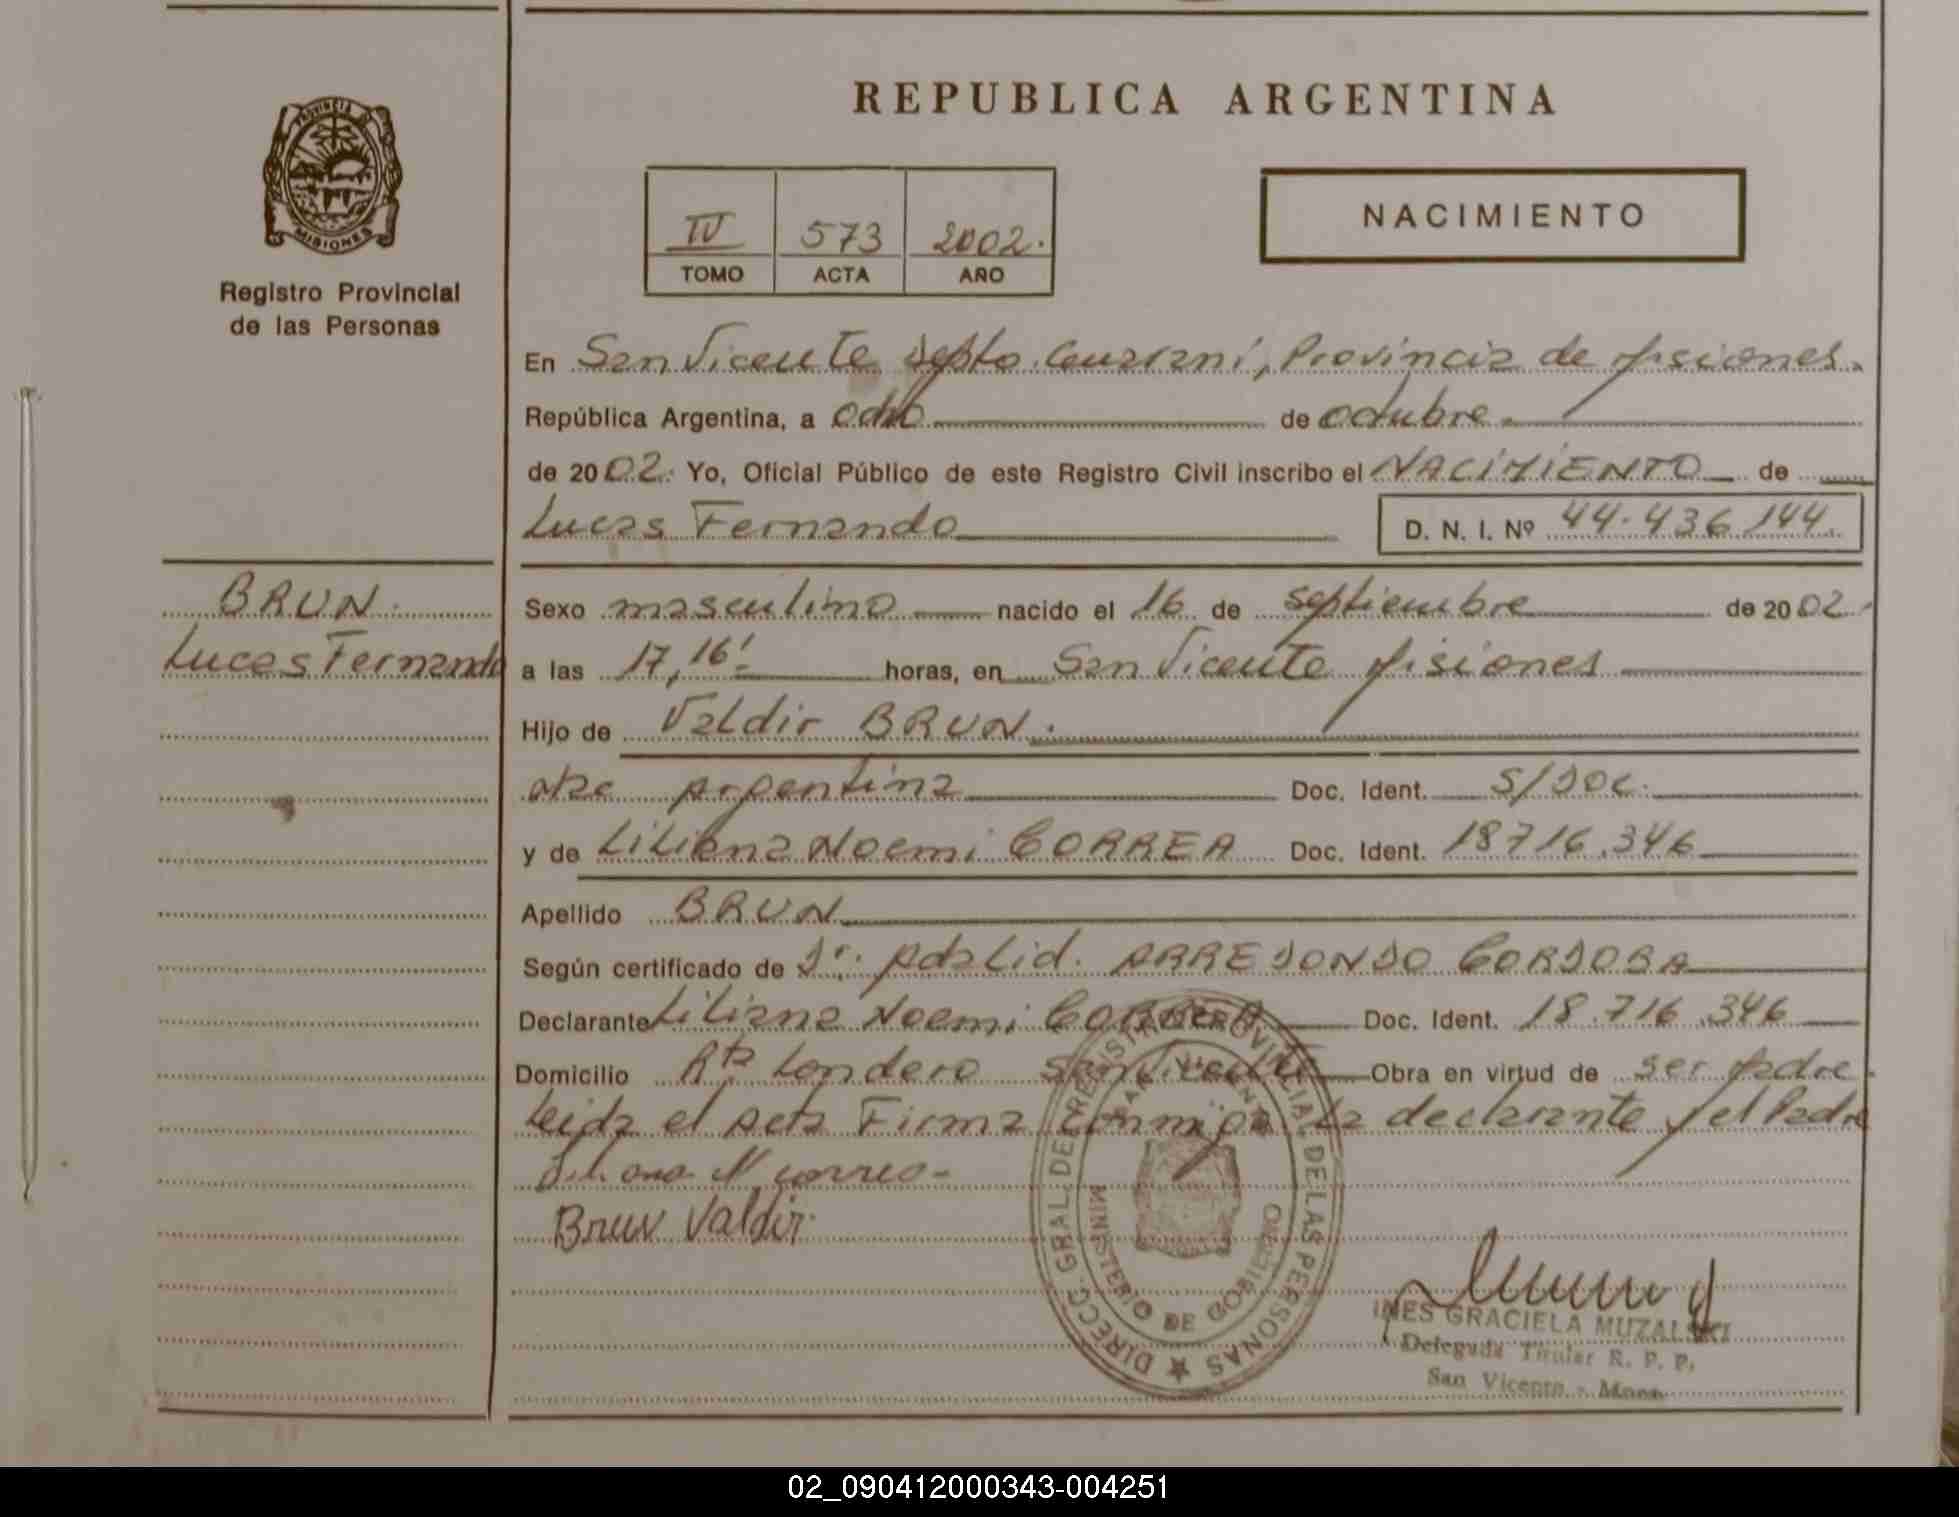 REPUBLICA ARGENTINA
PROVINCIA DE
MISIONES
Registro Provincial
de las Personas
IV 573 2002.
TOMO ACTA AÑO
NACIMIENTO
En San Vicente Depto. Guarani, Provincia de Misiones.
República Argentina, a ocho de octubre.
de 2002. Yo, Oficial Público de este Registro Civil inscribo el NACIMIENTO de
Lucas Fernando D. N. I. Nº 44.436.144.
BRUN.
Lucas Fernando
Sexo masculino nacido el 16 de septiembre de 2002.
a las 17,16' horas, en San Vicente Misiones
Hijo de Valdir BRUN.
Nac Argentina Doc. Ident. S/DOC.
y de Liliana Noemi CORREA Doc. Ident. 18716.346
Apellido BRUN
Según certificado de Dr. Adalid. ARREDONDO CORDOBA
Declarante Liliana Noemi CORREA Doc. Ident. 18.716.346
Domicilio Rta Londero San Vicente Obra en virtud de ser Padre.
Leida el Acta Firma conmigo La declarante y el Padre
Liliana N correa-
Brun Valdir.
DIRECC. GRAL. DEL REGISTRO PROVINCIAL DE LAS PERSONAS
SAN VICENTE
MINISTERIO DE GOBIERNO
INES GRACIELA MUZALSKI
Delegada Titular R. P. P.
San Vicente - Mnes.
02_090412000343-004251